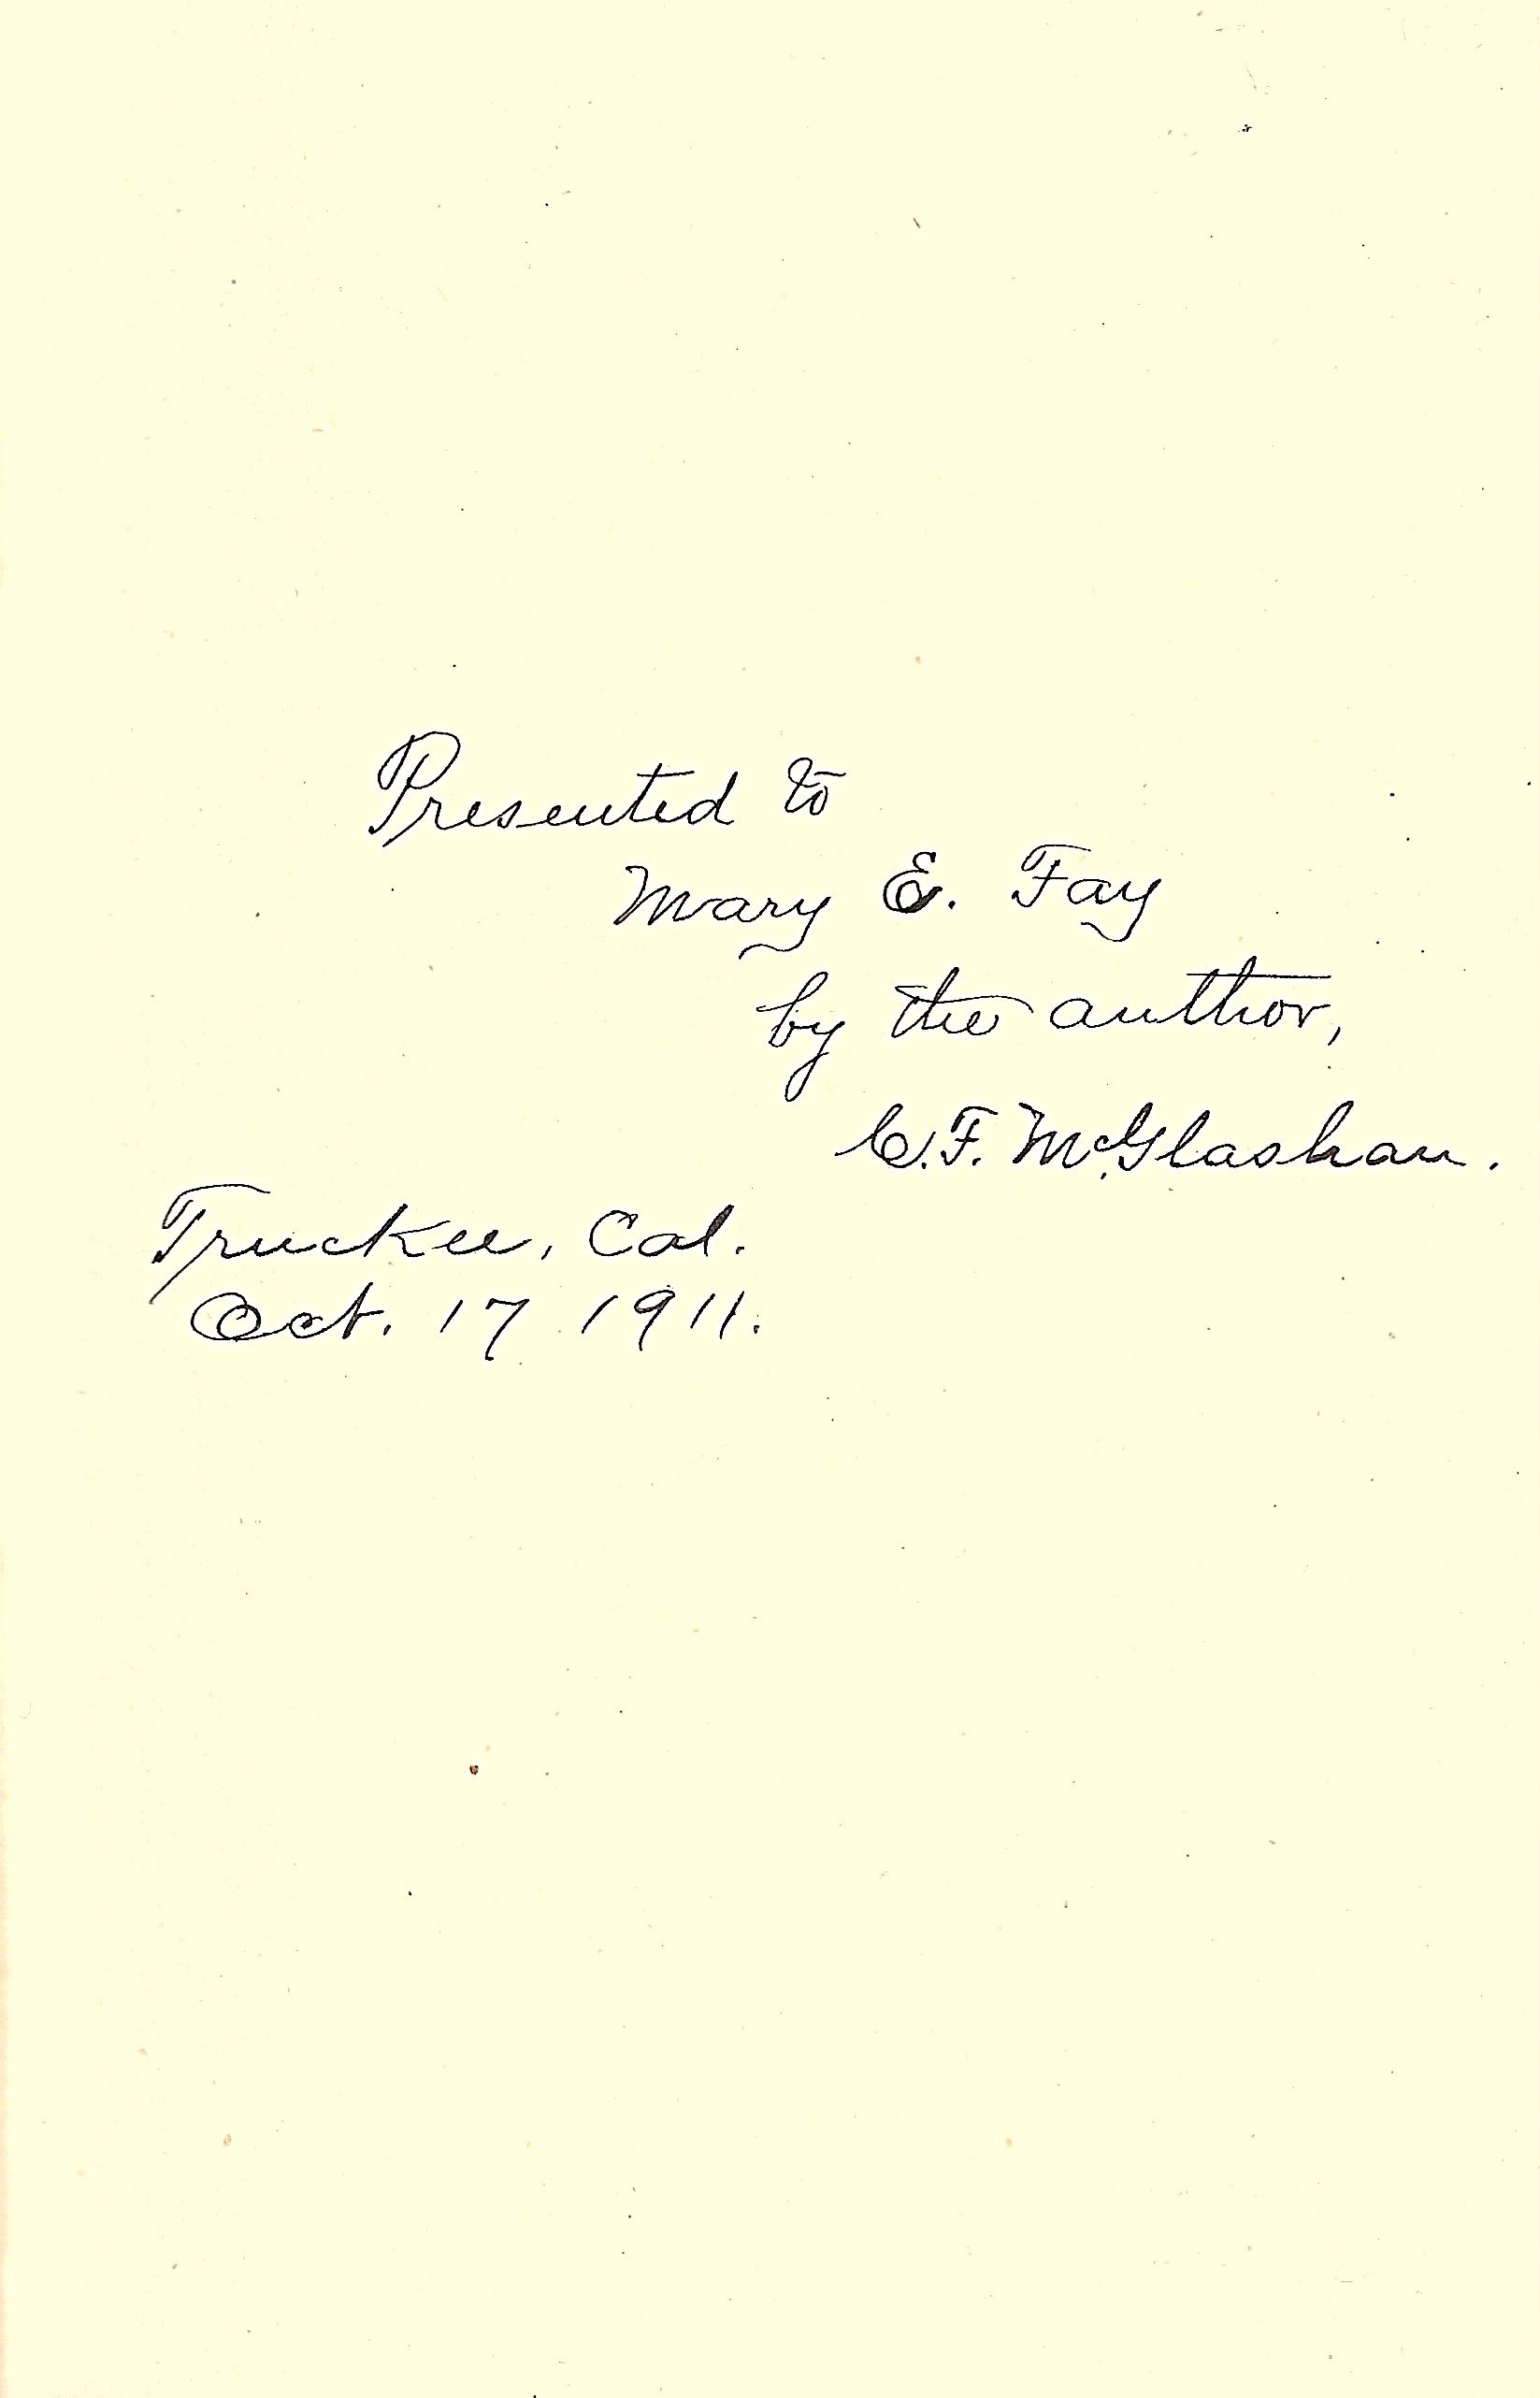 Presented to
Mary E. Fay
by the author,
C. F. McGlashan.
Truckee, Cal.
Oct. 17 1911.